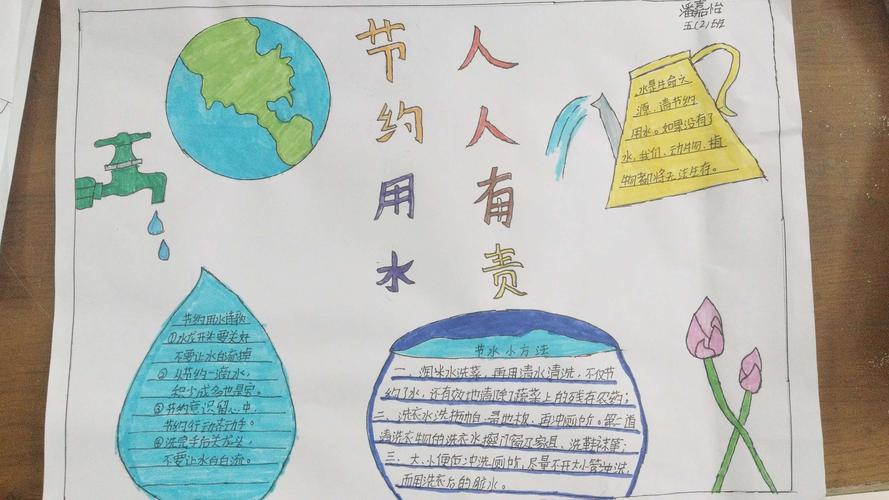 潘嘉怡
五(2)班
节约用水
人人有责
水是生命之
源,请节约
用水。如果没有了
水,我们、动物、植
物都将无法生存。
节约用水诗歌
①水龙开关要关好
不要让水白流掉
②从节约一滴水,
积少成多也是宝。
③节约意识留心中,
节约行动去动手。
④洗完手后关龙头,
不要让水白白流。
节水小方法
一、淘米水洗菜,再用清水清洗,不仅节
约了水,还有效地清除了蔬菜上的残存农药;
二、洗衣水洗拖帕、帚地板、再冲厕所。第二道
清洗衣物的洗衣水擦门窗及家具、洗鞋袜等;
三、大、小便后冲洗厕所,尽量不开大水管冲洗,
而用洗衣后的脏水。